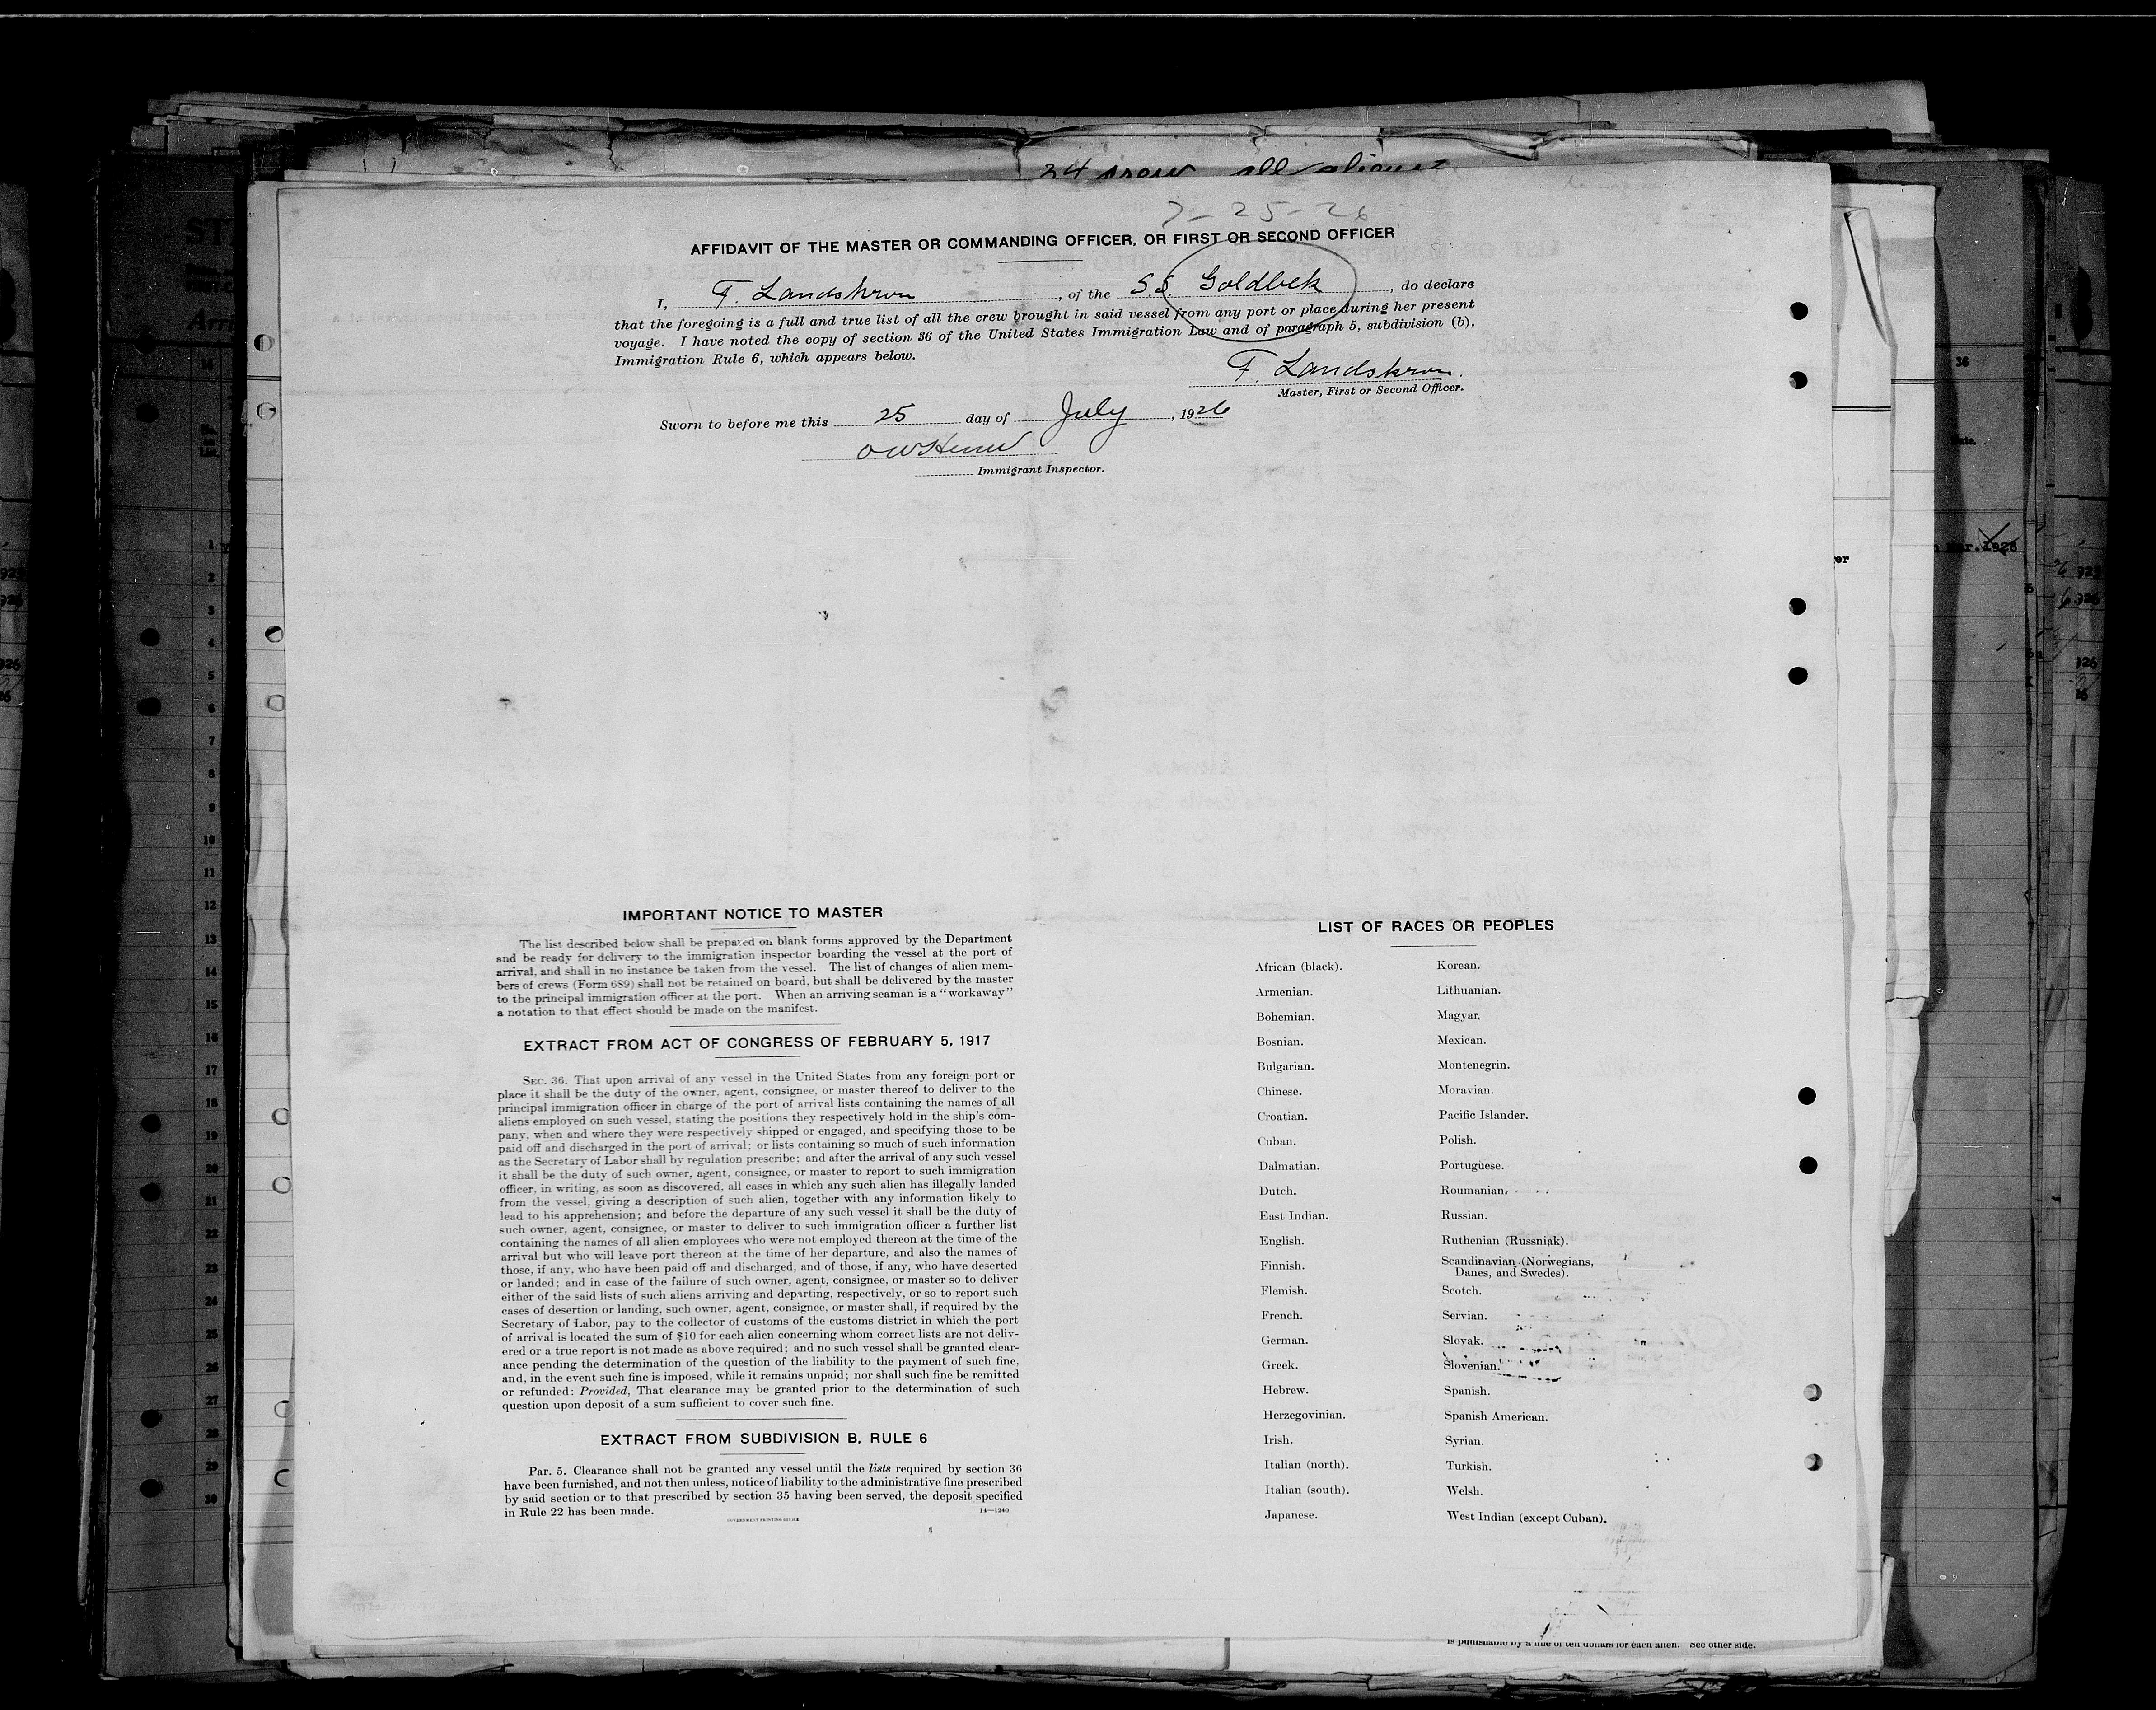 24 crew all aliens
7-25-26
AFFIDAVIT OF THE MASTER OR COMMANDING OFFICER, OR FIRST OR SECOND OFFICER
I, F. Landskron, of the S.S. Goldbek, do declare
that the foregoing is a full and true list of all the crew brought in said vessel from any port or place during her present
voyage. I have noted the copy of section 36 of the United States Immigration Law and of paragraph 5, subdivision (b),
Immigration Rule 6, which appears below.
F. Landskron.
Master, First or Second Officer.
Sworn to before me this 25 day of July, 1926
Immigrant Inspector.
IMPORTANT NOTICE TO MASTER
The list described below shall be prepared on blank forms approved by the Department
and be ready for delivery to the immigration inspector boarding the vessel at the port of
arrival, and shall in no instance be taken from the vessel. The list of changes of alien mem-
bers of crews (Form 689) shall not be retained on board, but shall be delivered by the master
to the principal immigration officer at the port. When an arriving seaman is a "workaway"
a notation to that effect should be made on the manifest.
EXTRACT FROM ACT OF CONGRESS OF FEBRUARY 5, 1917
SEC. 36. That upon arrival of any vessel in the United States from any foreign port or
place it shall be the duty of the owner, agent, consignee, or master thereof to deliver to the
principal immigration officer in charge of the port of arrival lists containing the names of all
aliens employed on such vessel, stating the positions they respectively hold in the ship's com-
pany, when and where they were respectively shipped or engaged, and specifying those to be
paid off and discharged in the port of arrival; or lists containing so much of such information
as the Secretary of Labor shall by regulation prescribe; and after the arrival of any such vessel
it shall be the duty of such owner, agent, consignee, or master to report to such immigration
officer, in writing, as soon as discovered, all cases in which any such alien has illegally landed
from the vessel, giving a description of such alien, together with any information likely to
lead to his apprehension; and before the departure of any such vessel it shall be the duty of
such owner, agent, consignee, or master to deliver to such immigration officer a further list
containing the names of all alien employees who were not employed thereon at the time of the
arrival but who will leave port thereon at the time of her departure, and also the names of
those, if any, who have been paid off and discharged, and of those, if any, who have deserted
or landed; and in case of the failure of such owner, agent, consignee, or master so to deliver
either of the said lists of such aliens arriving and departing, respectively, or so to report such
cases of desertion or landing, such owner, agent, consignee, or master shall, if required by the
Secretary of Labor, pay to the collector of customs of the customs district in which the port
of arrival is located the sum of $10 for each alien concerning whom correct lists are not deliv-
ered or a true report is not made as above required; and no such vessel shall be granted clear-
ance pending the determination of the question of the liability to the payment of such fine,
and, in the event such fine is imposed, while it remains unpaid; nor shall such fine be remitted
or refunded: Provided, That clearance may be granted prior to the determination of such
question upon deposit of a sum sufficient to cover such fine.
EXTRACT FROM SUBDIVISION B, RULE 6
Par. 5. Clearance shall not be granted any vessel until the lists required by section 36
have been furnished, and not then unless, notice of liability to the administrative fine prescribed
by said section or to that prescribed by section 35 having been served, the deposit specified
in Rule 22 has been made.
14—1240
GOVERNMENT PRINTING OFFICE
LIST OF RACES OR PEOPLES
African (black).
Armenian.
Bohemian.
Bosnian.
Bulgarian.
Chinese.
Croatian.
Cuban.
Dalmatian.
Dutch.
East Indian.
English.
Finnish.
Flemish.
French.
German.
Greek.
Hebrew.
Herzegovinian.
Irish.
Italian (north).
Italian (south).
Japanese.
Korean.
Lithuanian.
Magyar.
Mexican.
Montenegrin.
Moravian.
Pacific Islander.
Polish.
Portuguese.
Roumanian.
Russian.
Ruthenian (Russniak).
Scandinavian (Norwegians,
Danes, and Swedes).
Scotch.
Servian.
Slovak.
Slovenian.
Spanish.
Spanish American.
Syrian.
Turkish.
Welsh.
West Indian (except Cuban).
is punishable by a fine of ten dollars for each alien. See other side.